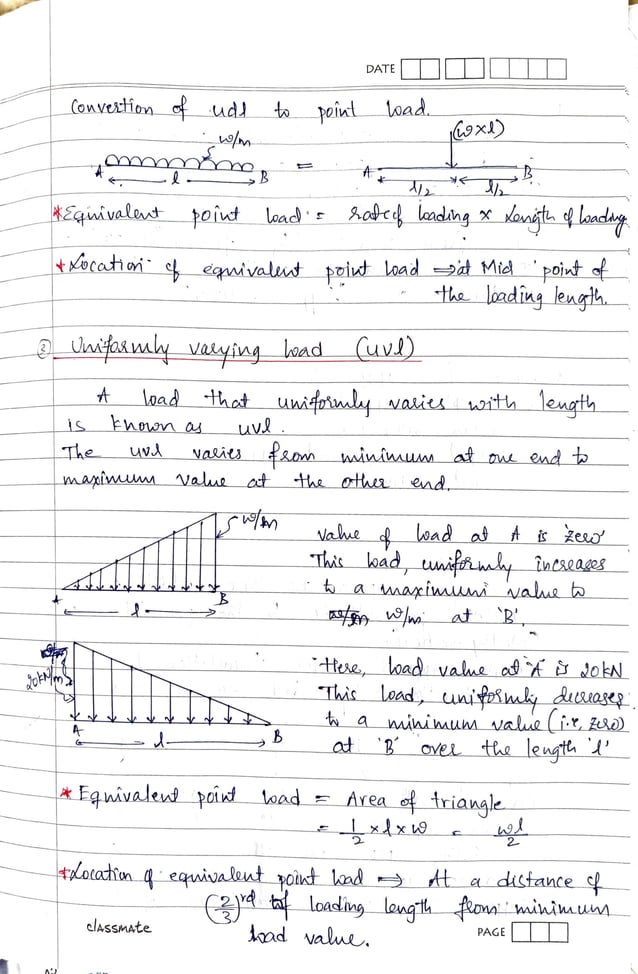 DATE
Convertion of udl to point load.
w/m
(w×l)
A l B = A B
l/2 l/2
*Equivalent point load = rate of loading × Length of loading
*Location of equivalent point load ⇒ at Mid point of
the loading length.
② Uniformly varying load (uvl)
A load that uniformly varies with length
is known as uvl.
The uvl varies from minimum at one end to
maximum value at the other end.
w/m
A B
l
value of load at A is 'zero'
This load, uniformly increases
to a maximum value to
w/m at 'B'.
20kN/m
A B
l
Here, load value at 'A' is 20kN
This load, uniformly decreases
to a minimum value (i.e, zero)
at 'B' over the length 'l'
* Equivalent point load = Area of triangle
= 1/2 × l × w = wl/2
*Location of equivalent point load ⇒ At a distance of
(2/3)rd of loading length from minimum
load value.
classmate
PAGE